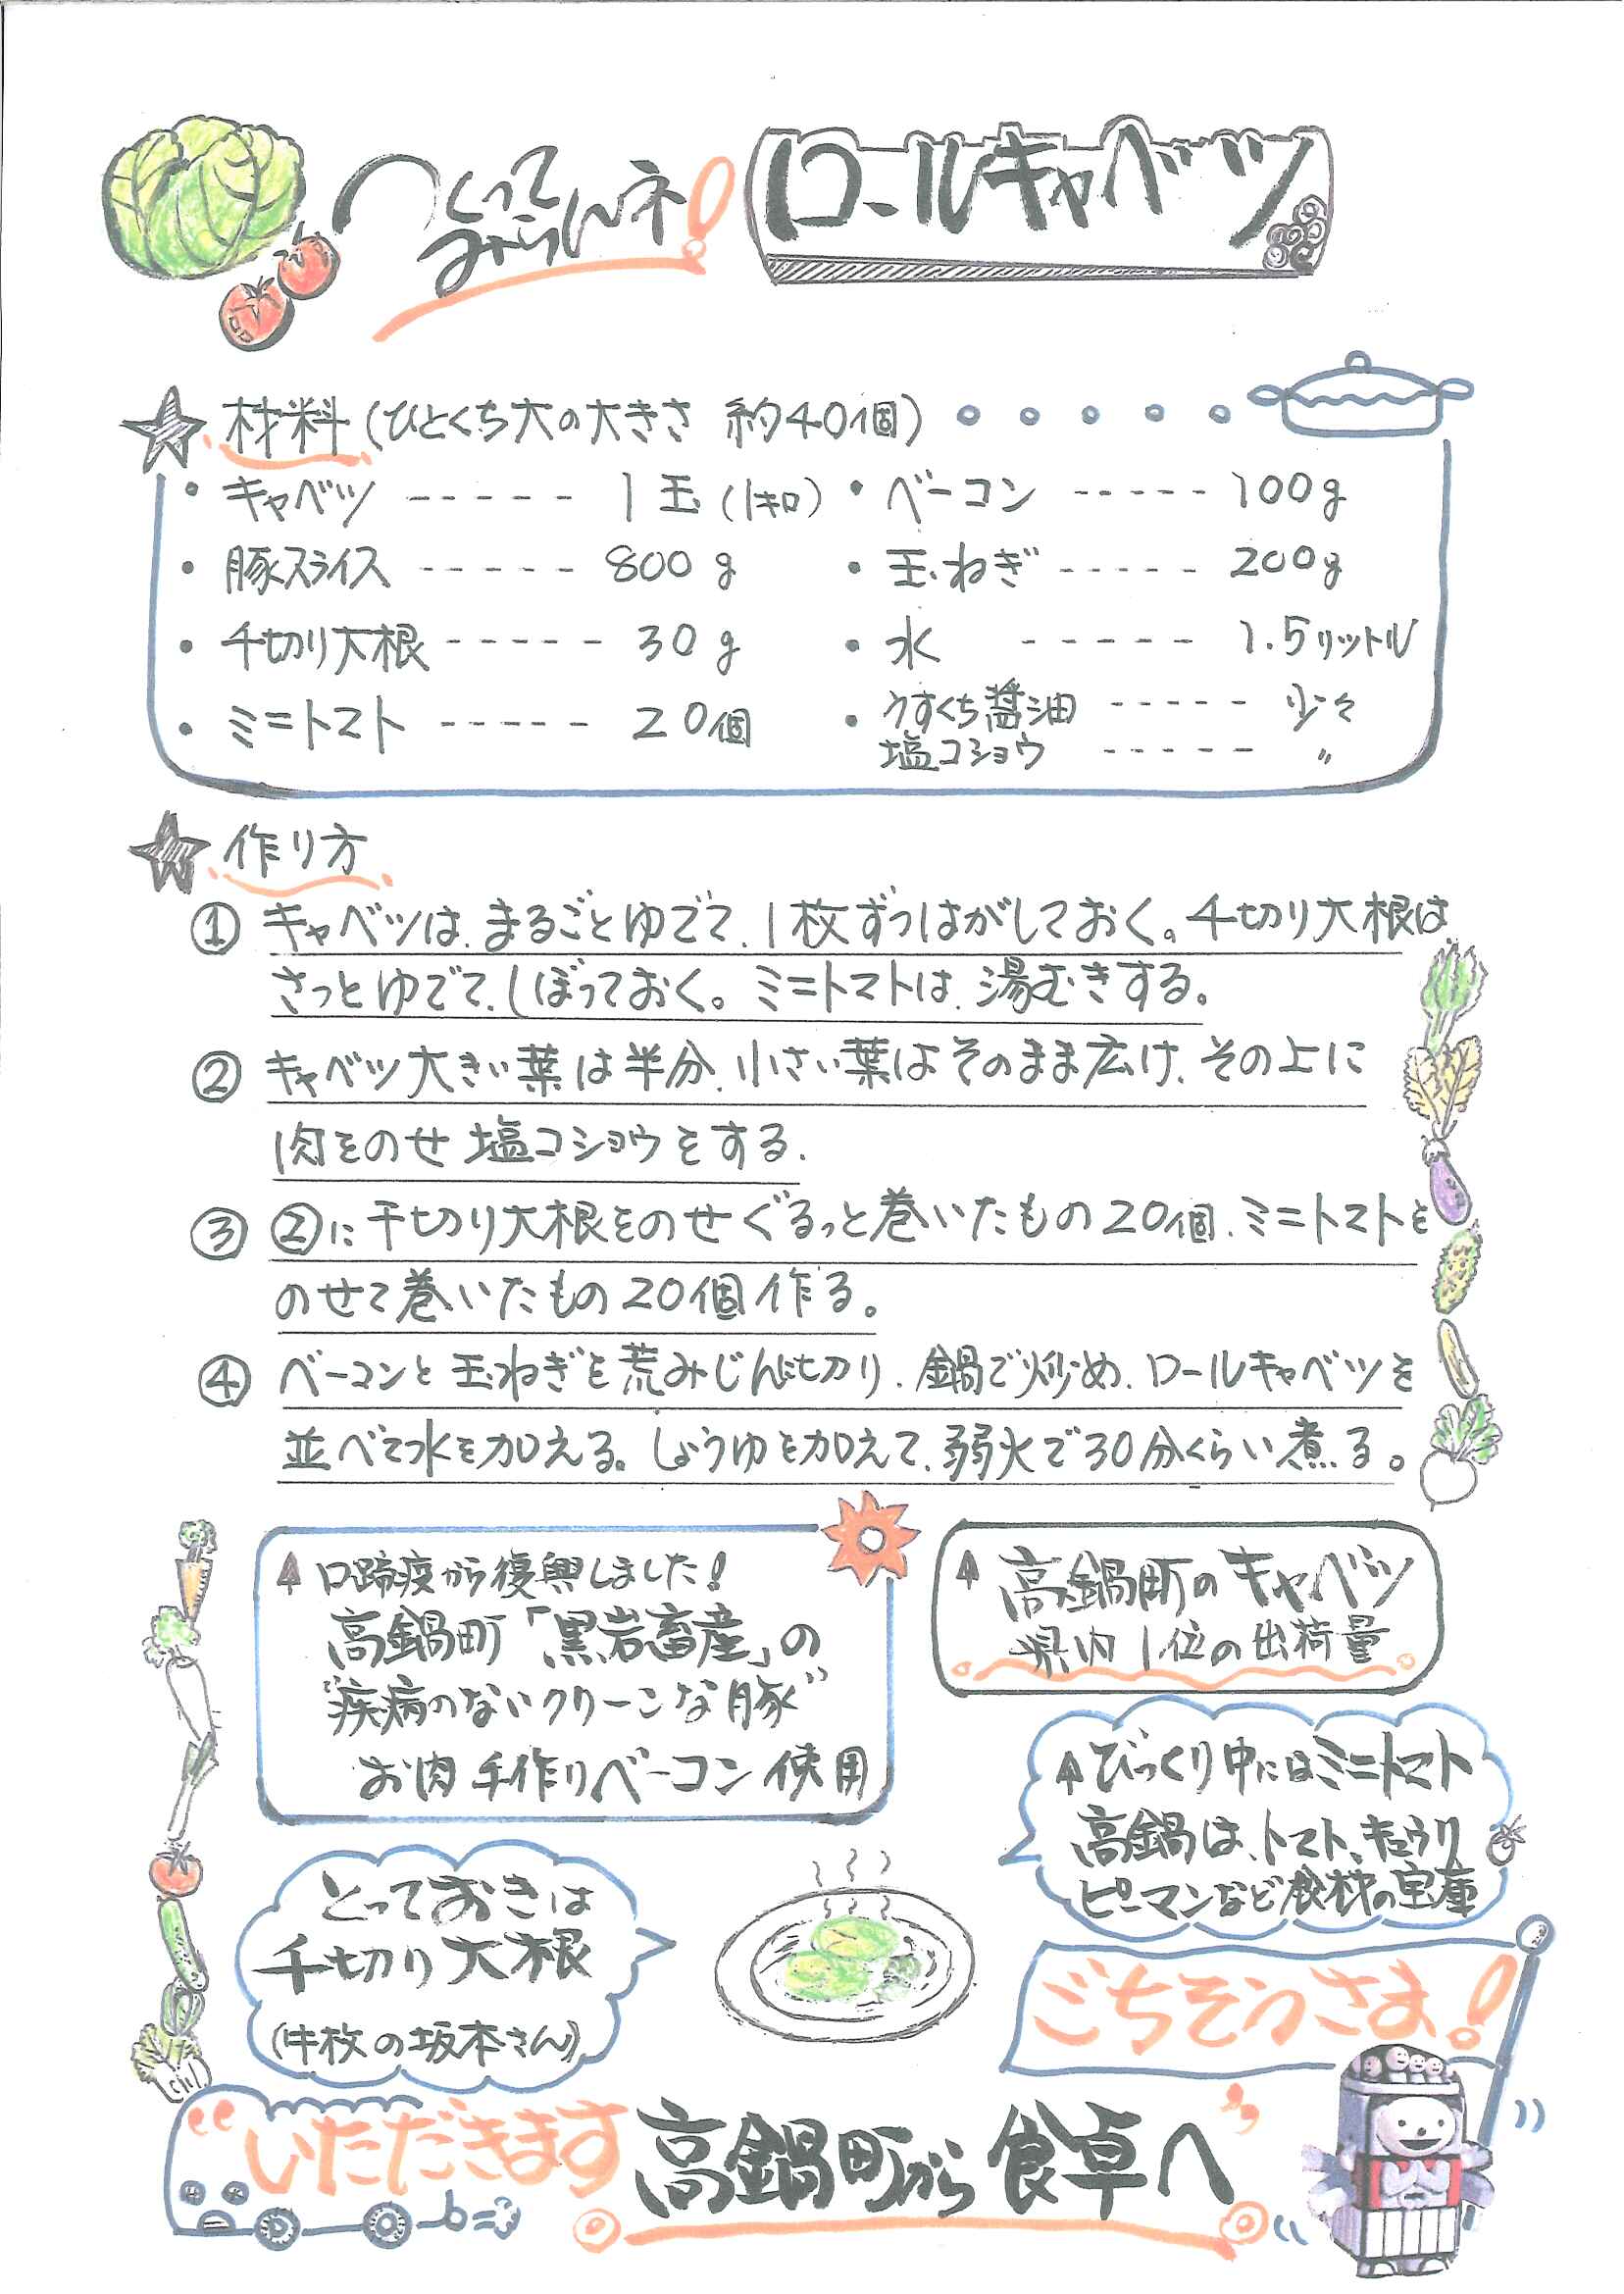 つくって
みらんネ！
ロールキャベツ
材料(ひとくち大の大きさ 約40個)
・キャベツ ----- 1玉(1キロ)
・豚スライス ----- 800g
・千切り大根 ----- 30g
・ミニトマト ----- 20個
・ベーコン ----- 100g
・玉ねぎ ----- 200g
・水 ----- 1.5リットル
・うすくち醤油 ----- 少々
塩コショウ ----- 〃
作り方
① キャベツは、まるごとゆでて、1枚ずつはがしておく。千切り大根は
さっとゆでて、しぼっておく。ミニトマトは、湯むきする。
② キャベツ大きい葉は半分、小さい葉はそのまま広げ、その上に
肉をのせ 塩コショウをする.
③ ②に千切り大根をのせぐるっと巻いたもの20個、ミニトマトを
のせて巻いたもの20個作る。
④ ベーコンと玉ねぎを荒みじんに切り、鍋で炒め、ロールキャベツを
並べて水を加える。しょうゆを加えて、弱火で30分くらい煮る。
口蹄疫から復興しました！
高鍋町「黒岩畜産」の
"疾病のないクリーンな豚"
お肉 手作りベーコン 使用
高鍋町のキャベツ
県内1位の出荷量
びっくり中にはミニトマト
高鍋は、トマト、キュウリ
ピーマンなど食材の宝庫
とっておきは
千切り大根
(牛牧の坂本さん)
ごちそうさま！
"いただきます 高鍋町から 食卓へ"